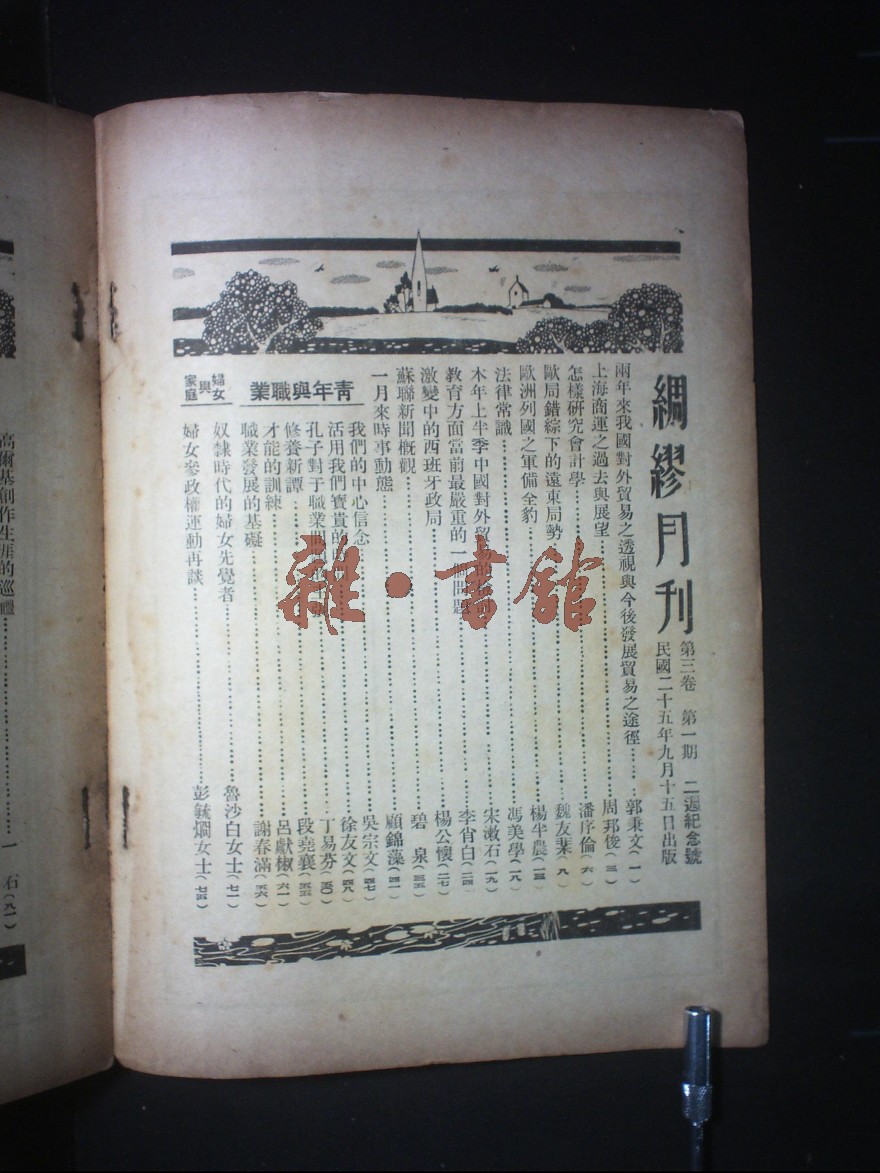 綢繆月刊
第三卷 第一期 二週紀念號
民國二十五年九月十五日出版
兩年來我國對外貿易之透視與今後發展貿易之途徑……郭秉文(一)
上海商運之過去與展望……周邦俊(三)
怎樣研究會計學……潘序倫(六)
歐局錯綜下的遠東局勢……魏友棐(八)
歐洲列國之軍備全豹……楊半農(一三)
法律常識……馮美學(一八)
本年上半季中國對外貿易的……宋漱石(一九)
教育方面當前最嚴重的一個問題……李肖白(二四)
激變中的西班牙政局……楊公懷(二七)
蘇聯新聞概觀……碧泉(三五)
一月來時事動態……顧錦藻(四一)
青年與職業
我們的中心信念……吳宗文(四七)
活用我們寶貴的……徐友文(四八)
孔子對于職業問題的……丁易芬(五〇)
修養新譚……段堯襄(五五)
才能的訓練……呂獻椒(六一)
職業發展的基礎……謝春滿(六六)
婦女與家庭
奴隸時代的婦女先覺者……魯沙白女士(七一)
婦女參政權運動再談……彭毓炯女士(七五)
高爾基創作生涯的巡禮……一石(八一)
雜·書館